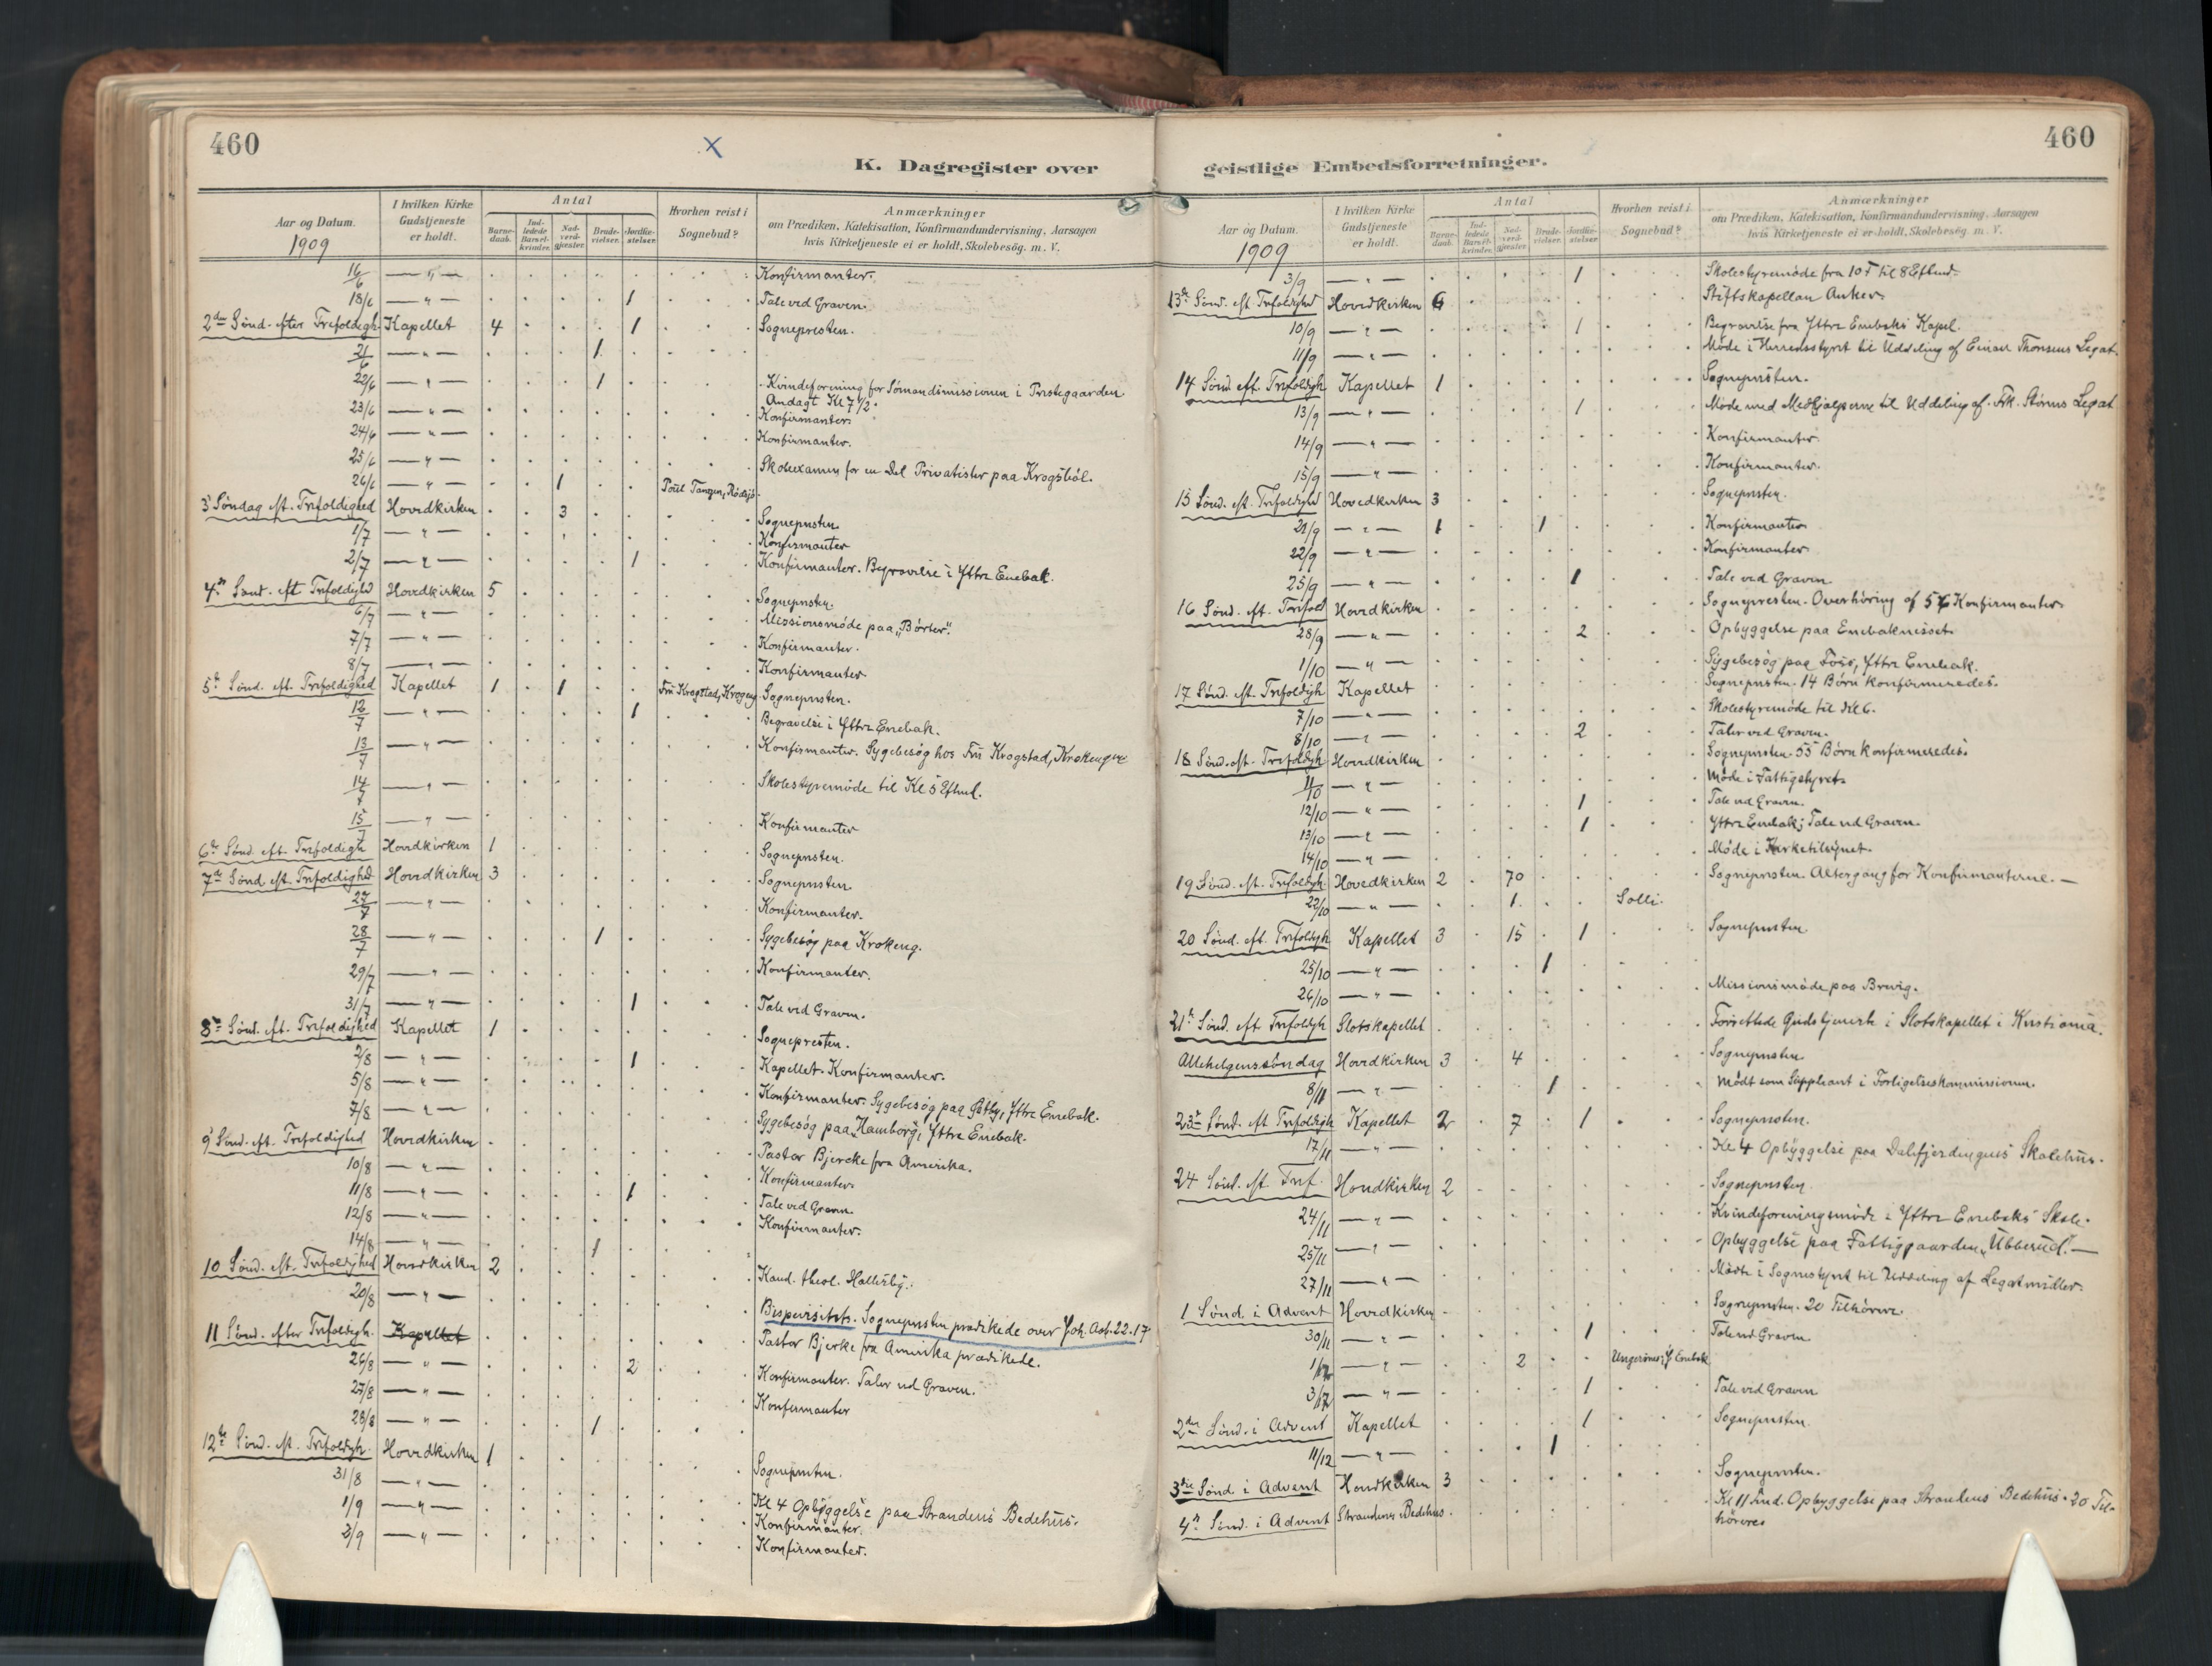 460
x
K. Dagregister over
Aar og Datum.
1909
I hvilken Kirke Gudstjeneste er holdt.
Antal
Barne-daab.
Ind-ledede Barsel-kvinder.
Nad-verd-gjæster.
Brude-vielser.
Jordfæ-stelser.
Hvorhen reist i Sognebud?
Anmærkninger
om Prædiken, Katekisation, Konfirmandundervisning, Aarsagen
hvis Kirketjeneste ei er holdt, Skolebesøg. m. V.
16/6 — " — Konfirmanter.
18/6 — " — 1 Tale ved Graven.
2den Sønd. efter Trefoldigh. Kapellet 4 1 Sognepresten.
21/6 — " — 1
22/6 — " — 1 Kvindeforening for Sømandsmissionen i Prestegaarden
23/6 — " — Andagt Kl 7 1/2.
Konfirmanter.
24/6 — " — Konfirmanter.
25/6 — " — Skoleexamen for en Del Privatister paa Krogsbøl.
26/6 — " — 1 Poul Tangen, Rødsjø.
3 Søndag eft. Trefoldighed Hovedkirken 3 Sognepresten
1/7 — " — Konfirmanter
2/7 — " — 1 Konfirmanter. Begravelse i Yttre Enebak.
4de Sønd. eft Trefoldighd Hovedkirken 5 Sognepresten.
6/7 — " — Missionsmøde paa "Børter".
7/7 — " — Konfirmanter.
8/7 — " — Konfirmanter
5te Sønd. eft. Trefoldighed Kapellet 1 1 Fru Krogstad, Krogeng Sognepresten.
12/7 — " — 1 Begravelse i Yttre Enebak.
13/7 — " — Konfirmanter. Sygebesøg hos Fru Krogstad, Krokengen
14/7 — " — Skolestyremøde til Kl 5 Eftmd.
15/7 — " — Konfirmanter
6te Sønd. eft. Trefoldigh Hovedkirken 1 Sognepresten.
7de Sønd eft. Trefoldighed Hovedkirken 3 Sognepresten
27/7 — " — Konfirmanter.
28/7 — " — 1 Sygebesøg paa Krokeng.
29/7 — " — Konfirmanter.
31/7 — " — 1 Tale ved Graven.
8de Sønd. eft. Trefoldighed Kapellet 1 Sognepresten.
2/8 — " — 1 Kapellet. Konfirmanter.
5/8 — " — Konfirmanter. Sygebesøg paa Gatby, Yttre Enebak.
7/8 — " — Sygebesøg paa Hamborg, Yttre Enebak.
9 Sønd. eft. Trefoldighed Hovedkirken Pastor Bjercke fra Amerika.
10/8 — " — Konfirmanter
11/8 — " — 1 Tale ved Graven
12/8 — " — Konfirmanter.
14/8 — " — 1
10 Sønd. eft. Trefoldighed Hovedkirken 2 Kand. theol. Hallesby.
20/8 — " — Bispevisitats. Sognepresten prædikede over Joh. Aab. 22.17
11 Sønd. efter Trefoldigh. Kapellet Pastor Bjerke fra Amerika prædikede.
26/8 — " — 2 Konfirmanter. Taler ved Graven.
27/8 — " — Konfirmanter
28/8 — " — 1
12te Sønd. eft. Trefoldigh. Hovedkirken 1 Sognepresten.
31/8 — " — Kl 4 Opbyggelse paa Strandens Bedehus.
1/9 — " — Konfirmanter.
2/9 — " — Konfirmanter.
460
geistlige Embedsforretninger.
Aar og Datum.
1909
I hvilken Kirke Gudstjeneste er holdt.
Antal
Barne-daab.
Ind-ledede Barsel-kvinder.
Nad-verd-gjæster.
Brude-vielser.
Jordfæ-stelser.
Hvorhen reist i Sognebud?
Anmærkninger
om Prædiken, Katekisation, Konfirmandundervisning, Aarsagen
hvis Kirketjeneste ei er holdt, Skolebesøg. m. V.
3/9 — " — 1 Skolestyremøde fra 10 F til 8 Eftmd.
13de Sønd. eft. Trefoldighed Hovedkirken 6 Stiftskapellan Anker.
10/9 — " — 1 Begravelse fra Yttre Enebaks Kapel.
11/9 — " — Møde i Herredsstyret til Uddeling af Einar Thonsens Legat.
14 Sønd. eft. Trefoldigh Kapellet 1 Sognepresten.
13/9 — " — 1 Møde med Medhjælperne til Uddeling af Frk. Storms Legat
14/9 — " — Konfirmanter.
15/9 — " — Konfirmanter.
15 Sønd. eft. Trefoldighd Hovedkirken 3 Sognepresten.
21/9 — " — 1 1 Konfirmanter
22/9 — " — Konfirmanter
25/9 — " — 1 Tale ved Graven
16 Sønd. eft. Trefold Hovedkirken Sognepresten. Overhøring af 56 Konfirmanter
28/9 — " — 2 Opbyggelse paa Enebaknesset.
1/10 — " — Sygebesøg paa Foss, Yttre Enebak.
17 Sønd. eft. Trefoldigh Kapellet Sognepresten. 14 Børn konfirmeredes.
7/10 — " — Skolestyremøde til Kl 6.
8/10 — " — 2 Taler ved Graven.
18 Sønd. eft. Trefoldigh Hovedkirken Sognepresten. 55 Børn konfirmeredes.
11/10 — " — Møde i Fattigstyret.
12/10 — " — 1 Tale ved Graven.
13/10 — " — 1 Yttre Enebak; Tale ved Graven.
14/10 — " — Møde i Kirketilsynet.
19 Sønd. eft. Trefoldigh Hovedkirken 2 70 Sognepresten. Altergang for Konfirmanterne. —
22/10 — " — 1 Solli.
20 Sønd. eft. Trefoldigh Kapellet 3 15 1 Sognepresten
25/10 — " — 1
26/10 — " — Missionsmøde paa Brevig.
21de Sønd. eft Trefoldigh Slotskapellet Forrettede Gudstjeneste i Slotskapellet i Kristiania.
Allehelgenssøndag Hovedkirken 3 4 Sognepresten
8/11 — " — 1 Mødt som Suppleant i Forligelseskommissionen.
23de Sønd. eft Trefoldigh Kapellet 2 7 1 Sognepresten.
17/11 — " — Kl 4 Opbyggelse paa Dalefjerdingens Skolehus.
24 Sønd. eft Tref. Hovedkirken 2 Sognepresten
24/11 — " — Kvindeforeningsmøde i Yttre Enebaks Skole.
25/11 — " — Opbyggelse paa Fattiggaarden "Ubberud". —
27/11 — " — Møde i Sognestyret til Uddeling af Legatmidler.
1 Sønd. i Advent Hovedkirken Sognepresten. 20 Tilhørere.
30/11 — " — 1 Tale ved Graven
1/12 — " — 2 Ungersnes, Y Enebak
3/12 — " — 1 Tale ved Graven
2den Sønd. i Advent Kapellet 1 Sognepresten
11/12 — " — 1
3die Sønd. i Advent Hovedkirken 3 Sognepresten.
4de Sønd. i Advent Strandens Bedehus. Kl 11 Fmd. Opbyggelse paa Strandens Bedehus. 20 Til-
hørere.